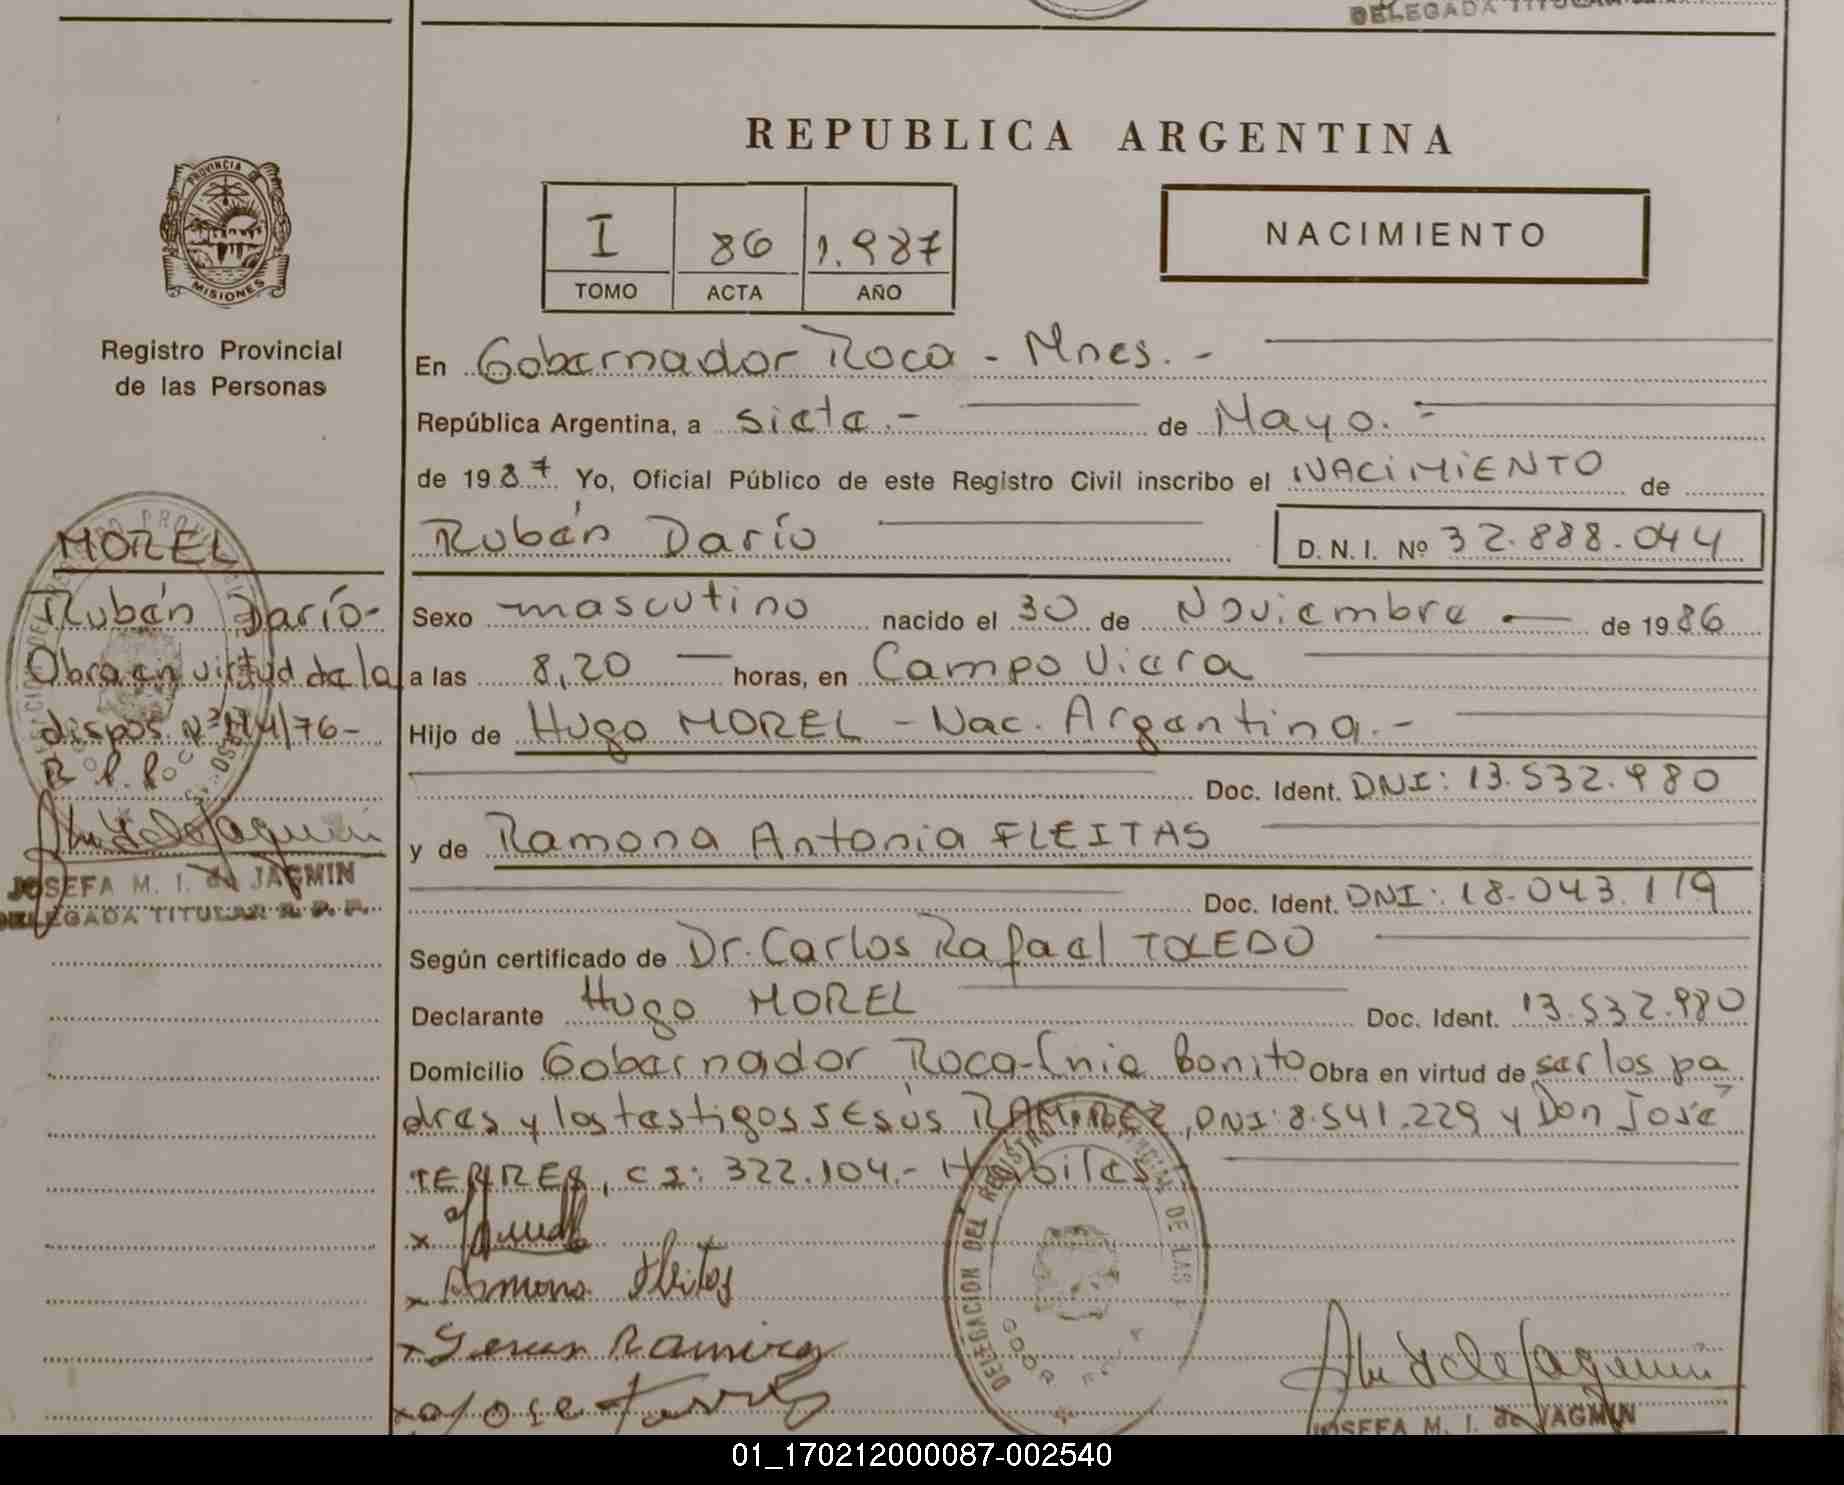 DELEGADA TITULAR
REPUBLICA ARGENTINA
PROVINCIA DE
MISIONES
Registro Provincial
de las Personas
I 86 1.987
TOMO ACTA AÑO
NACIMIENTO
En Gobernador Roca - Mnes. -
República Argentina, a siete.- de Mayo.-
de 1987 Yo, Oficial Público de este Registro Civil inscribo el NACIMIENTO de
Rubén Darío D. N. I. Nº 32.888.044
MOREL
Rubén Darío-
Obra en virtud de la
dispos. Nº /76-
R.P.P.
JOSEFA M. I. de JAGMIN
DELEGADA TITULAR R. P. P.
Sexo masculino nacido el 30 de Noviembre — de 1986
a las 8,20 — horas, en Campo Viera
Hijo de Hugo MOREL - Nac. Argentina.-
Doc. Ident. DNI: 13.532.980
y de Ramona Antonia FLEITAS
Doc. Ident. DNI: 18.043.119
Según certificado de Dr. Carlos Rafael TOLEDO
Declarante Hugo MOREL Doc. Ident. 13.532.980
Domicilio Gobernador Roca-Cnia Bonito Obra en virtud de ser los pa
dres y los testigos JESÚS RAMIREZ, DNI: 8.541.229 y Don José
CI: 322.104.- Hábiles
x
x Ramona Fleitas
x Jesus Ramirez
x Jose
DELEGACION DEL REGISTRO PROVINCIAL DE LAS
JOSEFA M. I. de JAGMIN
01_170212000087-002540